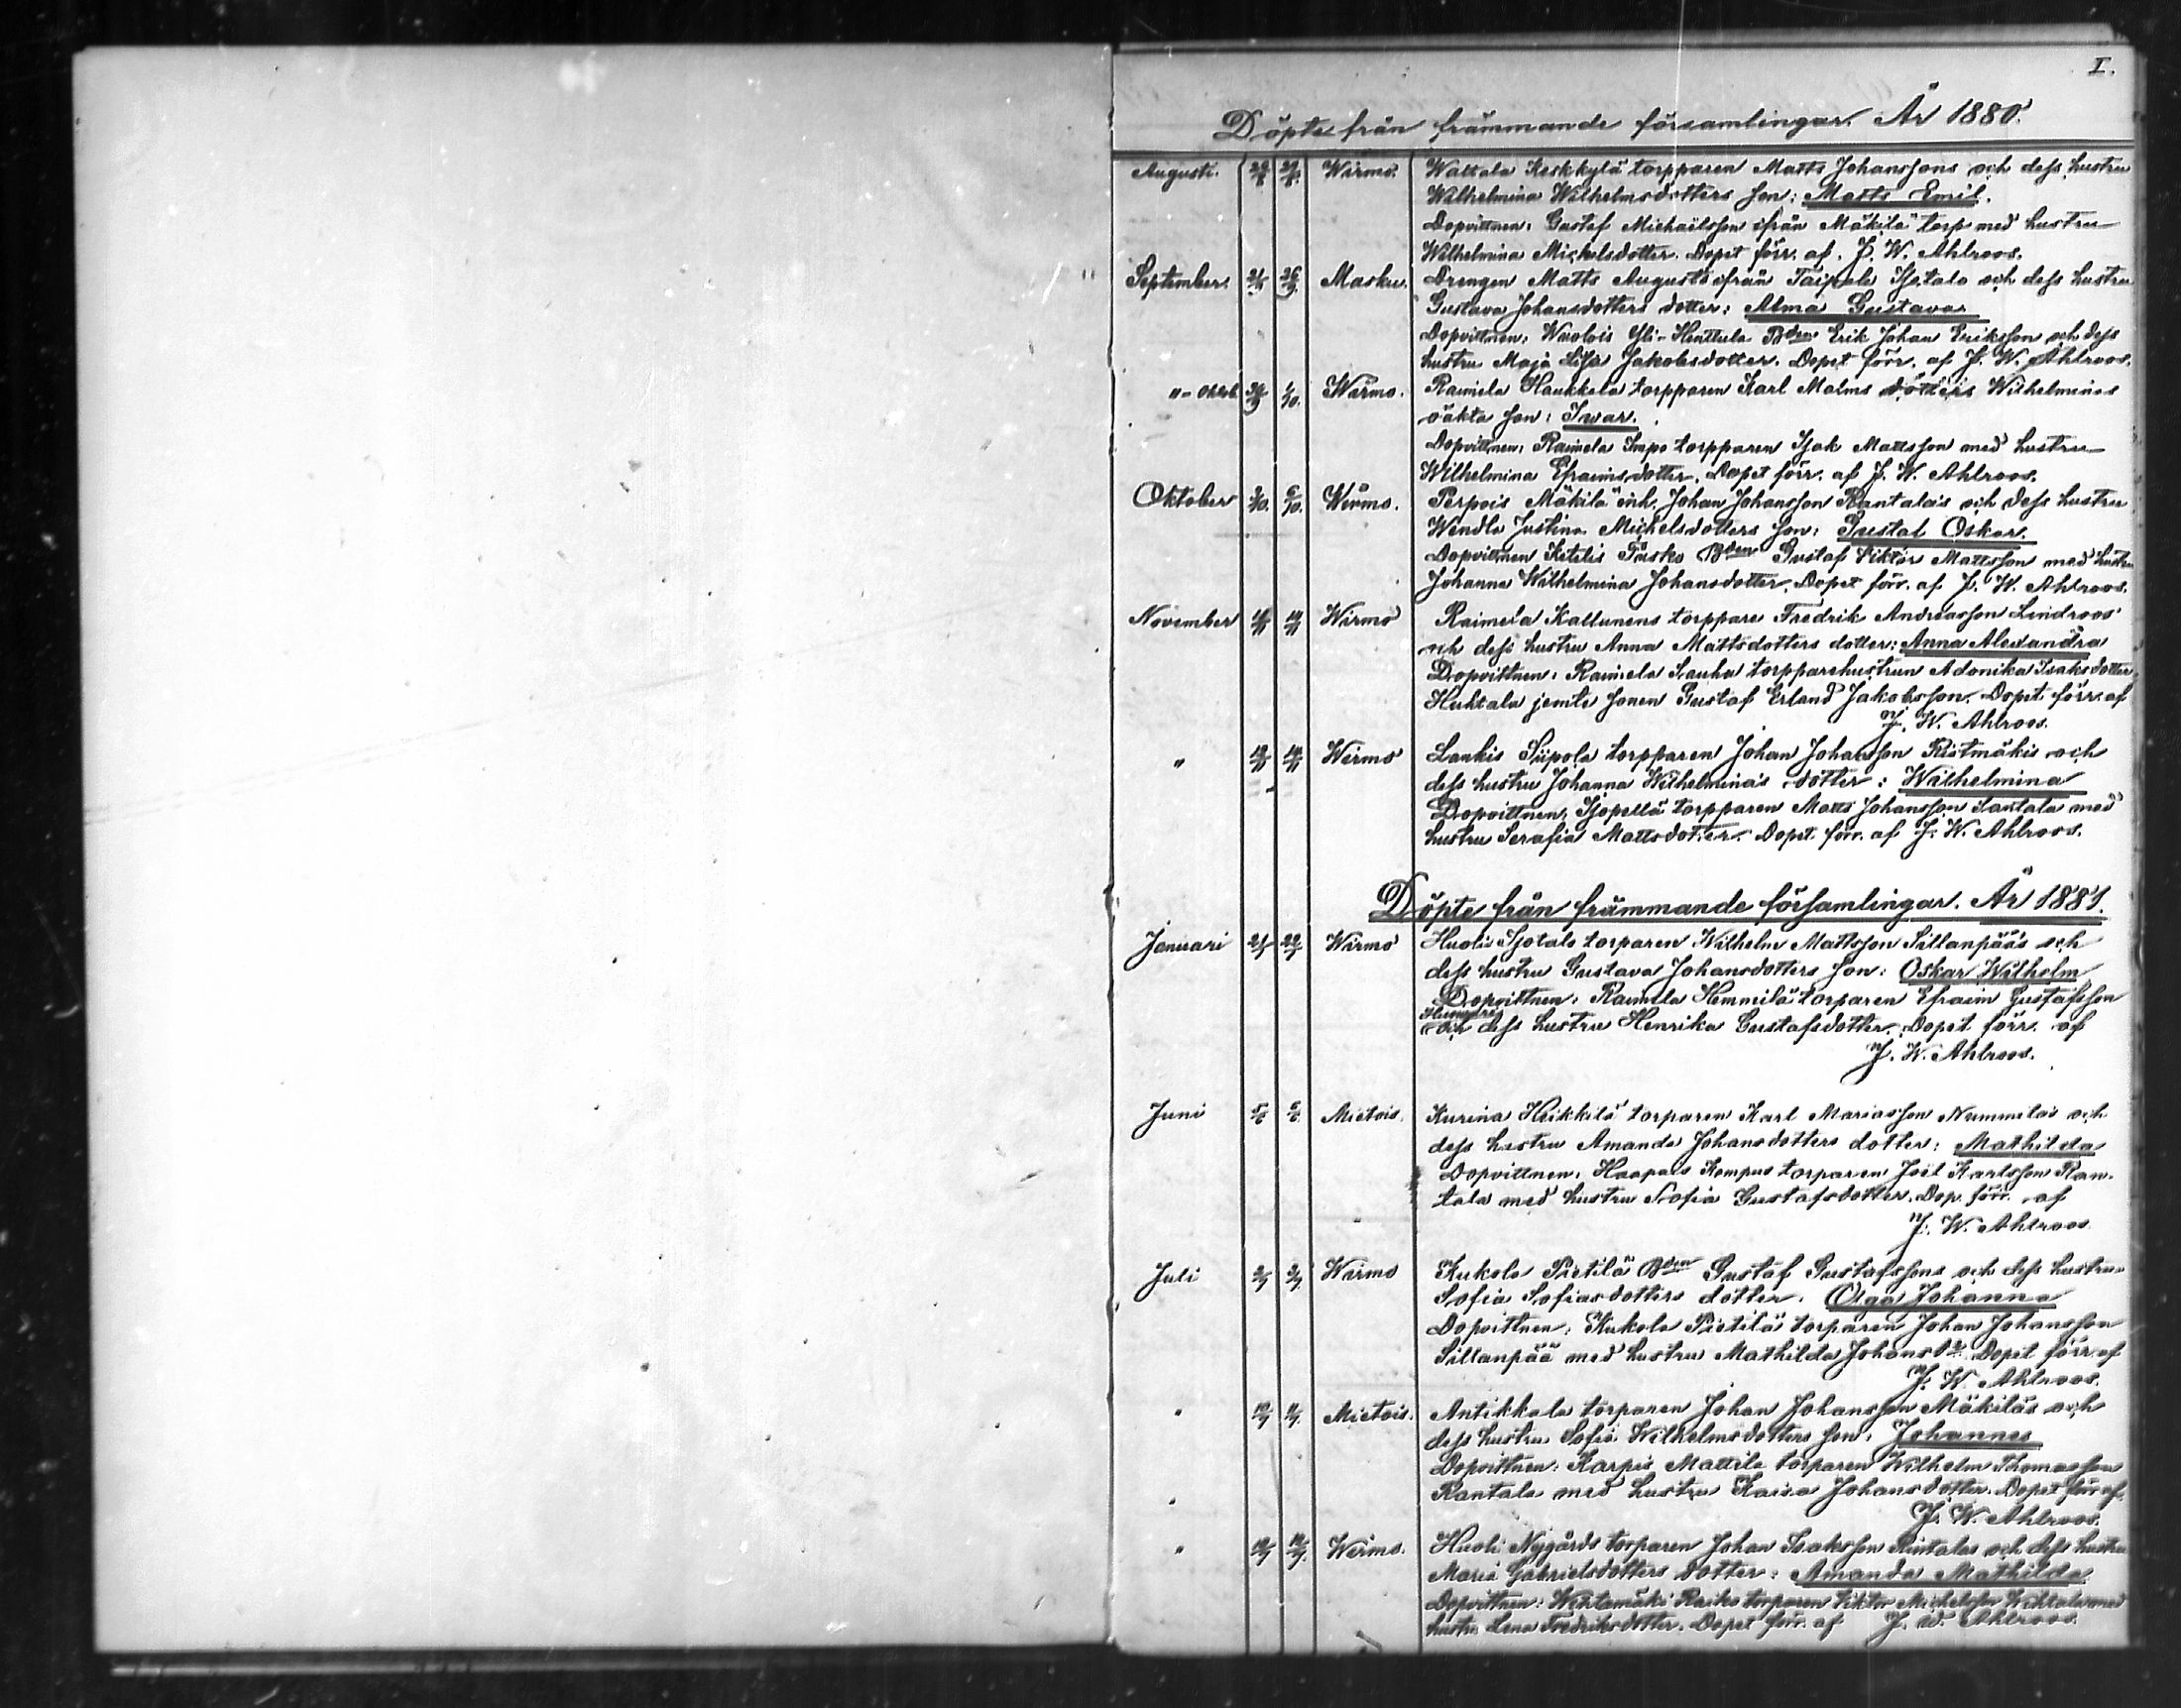 I.
Döpte från främmande församlingar. År 1880.
Augusti. Wirmo. Wattala Keskkylä torpparen Matts Johanssons och dess hustru
Wilhelmina Wilhelmsdotters son: Matts Emil.
Dopvittnen: Gustaf Michaëlsson ifrån Mäkilä torp med hustru
Wilhelmina Michelsdotter. Dopet förr. af. J. W. Ahlroos.
September. Masku. Drengen Matts Augusts ifrån Taipale Isotalo och dess hustru
Gustava Johansdotters dotter: Alma Gustava
Dopvittnen: Yli-Henttula Bden Erik Johan Eriksson och dess
hustru Maja Lisa Jakobsdotter. Dopet förr. af J. W. Ahlroos.
"- Oktob. Wirmo. Raimela Haukkala torpparen Karl Malms dotters Wilhelminas
oäkta son: Iwar.
Dopvittnen: Raimela Impo torpparen Isak Mattsson med hustru
Wilhelmina Efraimsdotter. Dopet förr. af J. W. Ahlroos.
Oktober 3/10. 6/10. Wirmo. Perpois Mäkilä inh. Johan Johansson Rantalas och dess hustru
Wendla Justina Michelsdotters son: Gustaf Oskar.
Dopvittnen Bden Gustaf Viktor Mattsson med hustru
Johanna Wilhelmina Johansdotter. Dopet förr. af J. W. Ahlroos.
November Wirmo Raimela Kallunens torppare Fredrik Andreasson Lindroos
och dess hustru Anna Mattsdotters dotter: Anna Alexandra
Dopvittnen: Raimela Sauha torpparehustrun Adonika Isaksdotter
Huhtala jemte sonen Gustaf Erland Jakobsson. Dopet förr. af
J. W. Ahlroos.
" Wirmo Laukis Siipola torpparen Johan Johansson Ristmäkis och
dess hustru Johanna Wilhelminas dotter: Wilhelmina
Dopvittnen: torpparen Matts Johansson Santala med
hustru Serafia Mattsdotter. Dopet förr. af J. W. Ahlroos.
Döpte från främmande församlingar. År 1881.
Januari 21/1 22/1 Wirmo Huoli Isotalo torparen Wilhelm Mattsson Sillanpääs och
dess hustru Gustava Johansdotters son: Oskar Wilhelm
Dopvittnen: Raimela Hemmilä torparen Efraim Gustafsson
och dess hustru Henrika Gustafsdotter. Dopet förr. af
J. W. Ahlroos.
Juni 5/6 6/6 Mietois. Kurina Heikkilä torparen Karl Mariasson Nummelas och
dess hustru Amanda Johansdotters dotter: Mathilda
Dopvittnen: Kompus torparen Joel Karlsson Ran-
tala med hustru Sofia Gustafsdotter. Dop. förr. af
J. W. Ahlroos
Juli 2/7 3/7 Wirmo Kukola Pietilä Bden Gustaf Gustafssons och dess hustru
Sofia Sofiasdotters dotter. Olga Johanna
Dopvittnen: Kukola Pietilä torparen Johan Johansson
Sillanpää med hustru Mathilda Johansdr. Dopet förr. af
J. W. Ahlroos.
" Mietois. Antikkala torparen Johan Johansson Mäkiläs och
dess hustru Sofia Wilhelmsdotters son: Johannes
Dopvittnen: Karpis Mattila torparen Wilhelm Thomasson
Rantala med hustru Kaisa Johansdotter. Dopet förr. af
J. W. Ahlroos.
" Wirmo. Huoli Nygårds torparen Johan Isaksson Rintalas och dess hustru
Maria Gabrielsdotters dotter: Amanda Mathilda
Dopvittnen: Raiko torparen Viktor Michelsson med
hustru Lena Fredriksdotter. Dopet förr. af J. W. Ahlroos.